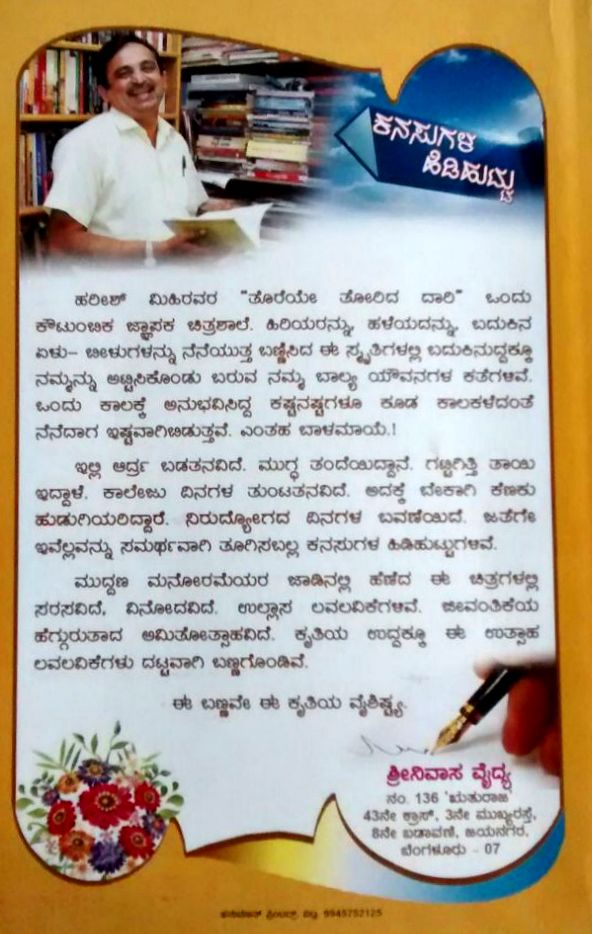 ಕನಸುಗಳ
ಹಿಡಿಹುಟ್ಟು
ಹರೀಶ್ ಮಿಹಿರವರ "ತೊರೆಯೇ ತೋರಿದ ದಾರಿ" ಒಂದು
ಕೌಟುಂಬಿಕ ಜ್ಞಾಪಕ ಚಿತ್ರಶಾಲೆ. ಹಿರಿಯರನ್ನು, ಹಳೆಯದನ್ನು, ಬದುಕಿನ
ಏಳು- ಬೀಳುಗಳನ್ನು ನೆನೆಯುತ್ತ ಬಣ್ಣಿಸಿದ ಈ ಸ್ಮೃತಿಗಳಲ್ಲಿ ಬದುಕಿನುದ್ದಕ್ಕೂ
ನಮ್ಮನ್ನು ಅಟ್ಟಿಸಿಕೊಂಡು ಬರುವ ನಮ್ಮ ಬಾಲ್ಯ ಯೌವನಗಳ ಕತೆಗಳಿವೆ.
ಒಂದು ಕಾಲಕ್ಕೆ ಅನುಭವಿಸಿದ್ದ ಕಷ್ಟನಷ್ಟಗಳೂ ಕೂಡ ಕಾಲಕಳೆದಂತೆ
ನೆನೆದಾಗ ಇಷ್ಟವಾಗಿಬಿಡುತ್ತವೆ. ಎಂತಹ ಬಾಳಮಾಯೆ.!
ಇಲ್ಲಿ ಆರ್ದ್ರ ಬಡತನವಿದೆ. ಮುಗ್ಧ ತಂದೆಯಿದ್ದಾನೆ. ಗಟ್ಟಿಗಿತ್ತಿ ತಾಯಿ
ಇದ್ದಾಳೆ. ಕಾಲೇಜು ದಿನಗಳ ತುಂಟತನವಿದೆ. ಅದಕ್ಕೆ ಬೇಕಾಗಿ ಕೆಣಕು
ಹುಡುಗಿಯರಿದ್ದಾರೆ. ನಿರುದ್ಯೋಗದ ದಿನಗಳ ಬವಣೆಯಿದೆ. ಜತೆಗೇ
ಇವೆಲ್ಲವನ್ನು ಸಮರ್ಥವಾಗಿ ತೂಗಿಸಬಲ್ಲ ಕನಸುಗಳ ಹಿಡಿಹುಟ್ಟುಗಳಿವೆ.
ಮುದ್ದಣ ಮನೋರಮೆಯರ ಜಾಡಿನಲ್ಲಿ ಹೆಣೆದ ಈ ಚಿತ್ರಗಳಲ್ಲಿ
ಸರಸವಿದೆ, ವಿನೋದವಿದೆ. ಉಲ್ಲಾಸ ಲವಲವಿಕೆಗಳಿವೆ. ಜೀವಂತಿಕೆಯ
ಹೆಗ್ಗುರುತಾದ ಅಮಿತೋತ್ಸಾಹವಿದೆ. ಕೃತಿಯ ಉದ್ದಕ್ಕೂ ಈ ಉತ್ಸಾಹ
ಲವಲವಿಕೆಗಳು ದಟ್ಟವಾಗಿ ಬಣ್ಣಗೊಂಡಿವೆ.
ಈ ಬಣ್ಣವೇ ಈ ಕೃತಿಯ ವೈಶಿಷ್ಟ್ಯ.
ಶ್ರೀನಿವಾಸ ವೈದ್ಯ
ನಂ. 136 'ಋತುರಾಜ'
43ನೇ ಕ್ರಾಸ್, 3ನೇ ಮುಖ್ಯರಸ್ತೆ,
8ನೇ ಬಡಾವಣೆ, ಜಯನಗರ,
ಬೆಂಗಳೂರು - 07
9945752125